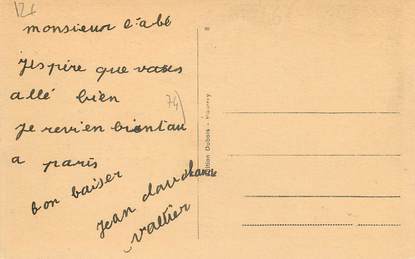 126
monsieur l'abé
jespire que vous
allé bien
74)
je revien bientau
a paris
bon baiser
jean
valtier
Edition Dubois -